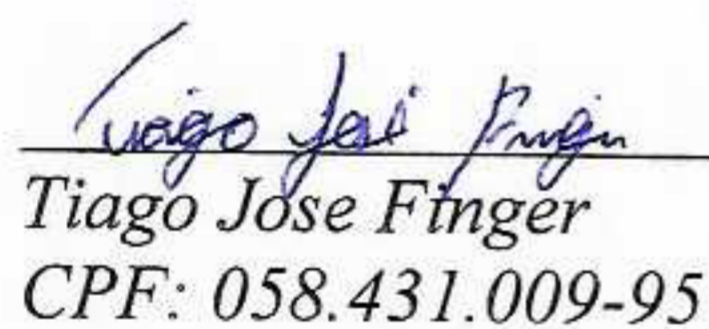 Tiago José Finger
Tiago Jose Finger
CPF: 058.431.009-95